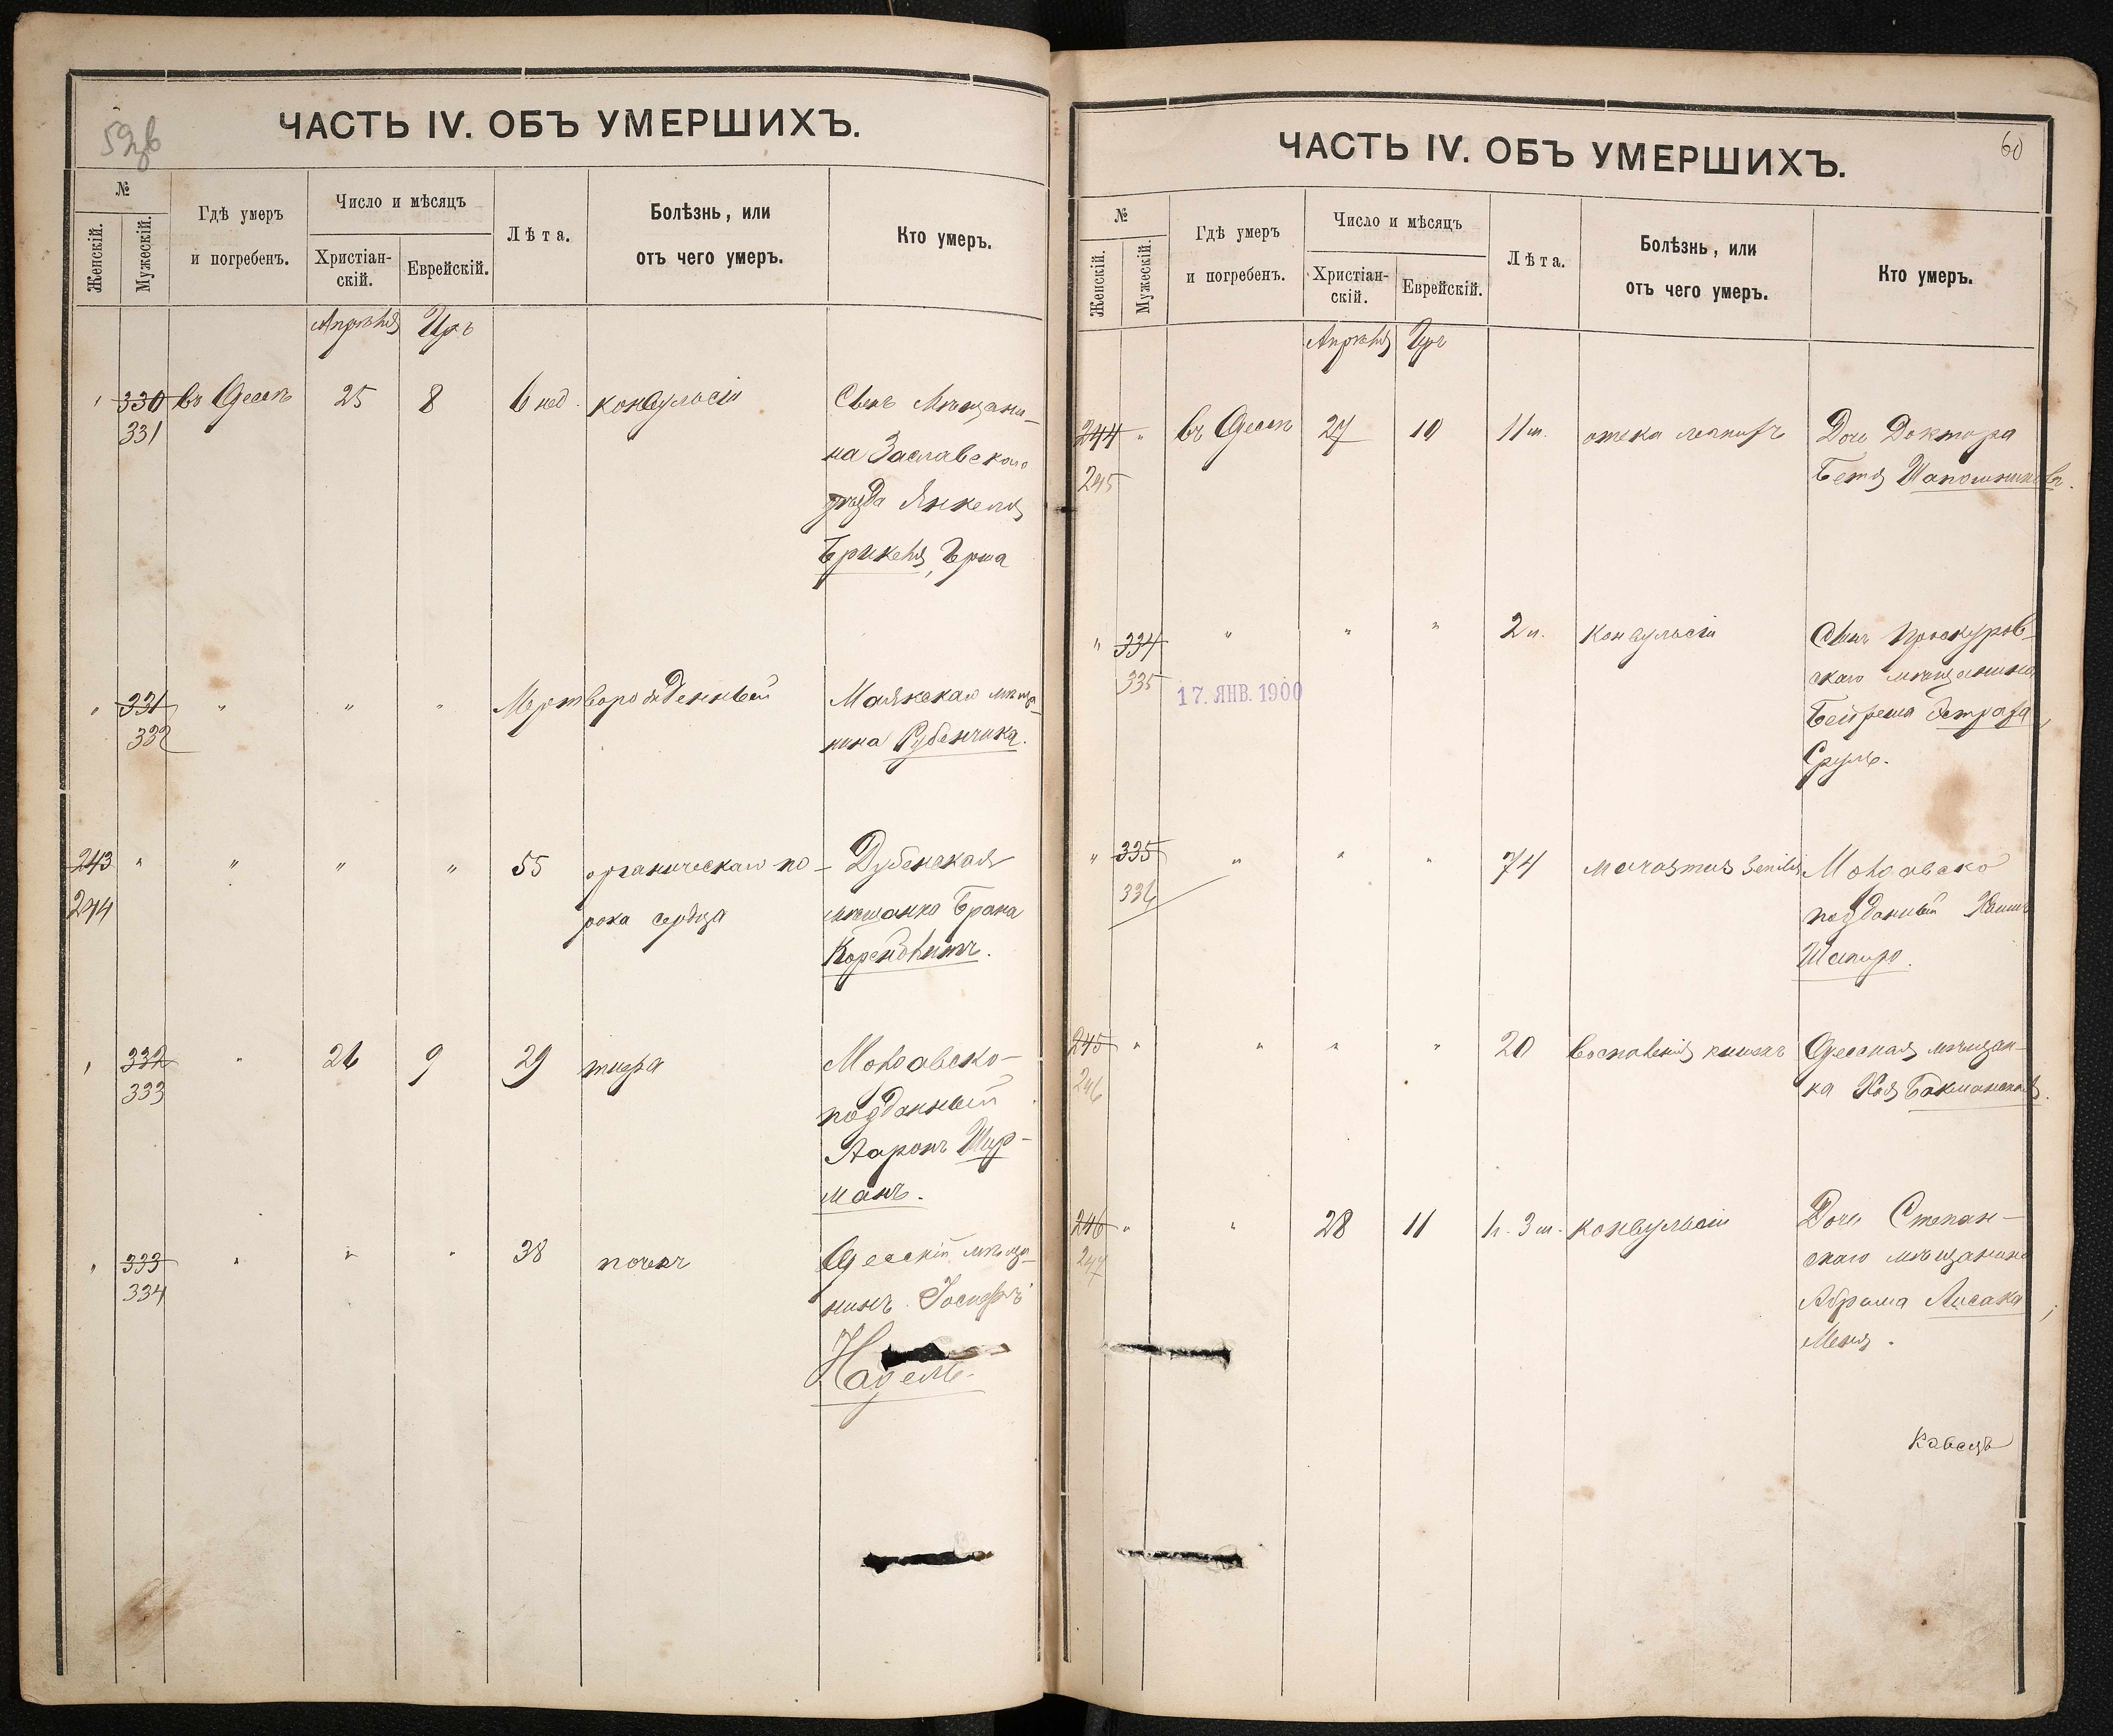 59 об
ЧАСТЬ IV. ОБЪ УМЕРШИХЪ.
№
Женскій.
Мужескій.
Гдѣ умеръ
и погребенъ.
Число и мѣсяцъ
Христіан-
скій.
Еврейскій.
Лѣта.
Болѣзнь, или
отъ чего умеръ.
Кто умеръ.
Апрѣля Иръ
" 330 въ Одессѣ 25 8 6 нед. конвульсіи Сынъ Мѣщани-
331
на Заславскаго
уѣзда Янкеля
Брикеля, Герша
" 331 " " " Мертворожденный Маякскаго мѣща-
332
нина Рубенчика.
243 " " " " 55 органическаго по- Дубенская
244
рока сердца мѣщанка Брана
Коренблитъ.
" 332 " 26 9 29 тифа Молдавско-
333
подданный
Ааронъ Шур-
манъ.
" 333 " " " 38 почекъ Одесскій мѣща-
334
нинъ Іосифъ
Надель.
60
ЧАСТЬ IV. ОБЪ УМЕРШИХЪ.
№
Женскій.
Мужескій.
Гдѣ умеръ
и погребенъ.
Число и мѣсяцъ
Христіан-
скій.
Еврейскій.
Лѣта.
Болѣзнь, или
отъ чего умеръ.
Кто умеръ.
Апрѣля Иръ
244 " въ Одессѣ 27 10 11 м. отека легкихъ Дочь Доктора
245
Бетя Шапошникова.
" 334 " " " 2 м. конвульсіи Сынъ Проскуров-
335
скаго мѣщанина
17. ЯНВ. 1900
Сруль.
" 335 " " " 74 Marasmus senilis Молдавско
336
подданный Хаимъ
Шапиро.
245 " " " " 20 воспаленія кишекъ Одесская мѣщан-
246
ка Хая Бакманская.
246 " " 28 11 1 г. 3 м. конвульсіи Дочь Степан-
247
скаго мѣщанина
Абрама Лисака
Меня.